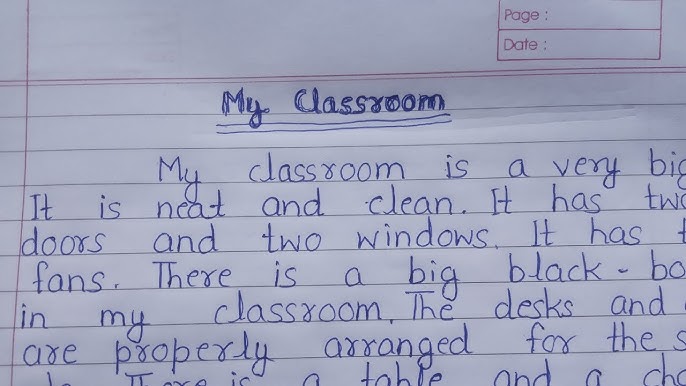 Page :
Date :
My Classroom
My classroom is a very big
It is neat and clean. It has two
doors and two windows. It has
fans. There is a big black-bo
in my classroom. The desks and
are properly arranged for the s
There is a table and a cha